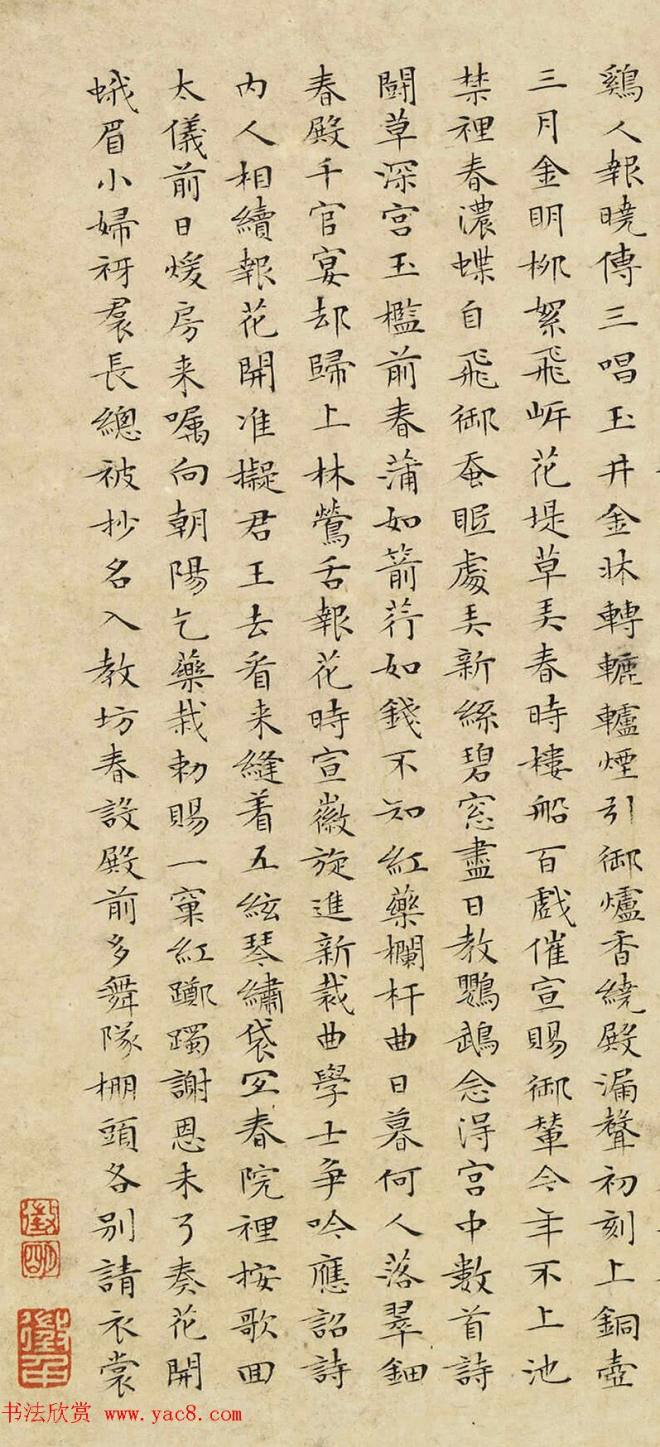 鷄人報曉傳三唱玉井金牀轉轆轤煙引御爐香繞殿漏聲初刻上銅壺
三月金明柳絮飛岍花堤草弄春時樓船百戲催宣賜御輦今年不上池
禁裡春濃蝶自飛御蚕眠處弄新絲碧窓盡日教鸚鵡念得宮中數首詩
鬪草深宮玉檻前春蒲如箭荇如錢不知紅藥欄杆曲日暮何人落翠鈿
春殿千官宴却歸上林鶯舌報花時宣徽旋進新裁曲學士爭吟應詔詩
內人相續報花開准擬君王去看来縫着五絃琴繡袋宜春院裡按歌回
太儀前日煖房来囑向朝陽乞藥栽勅賜一窠紅躑躅謝恩未了奏花開
蛾眉小婦砑裠長總被抄名入教坊春設殿前多舞隊棚頭各別請衣裳
徵
明
书法欣赏 www.yac8.com